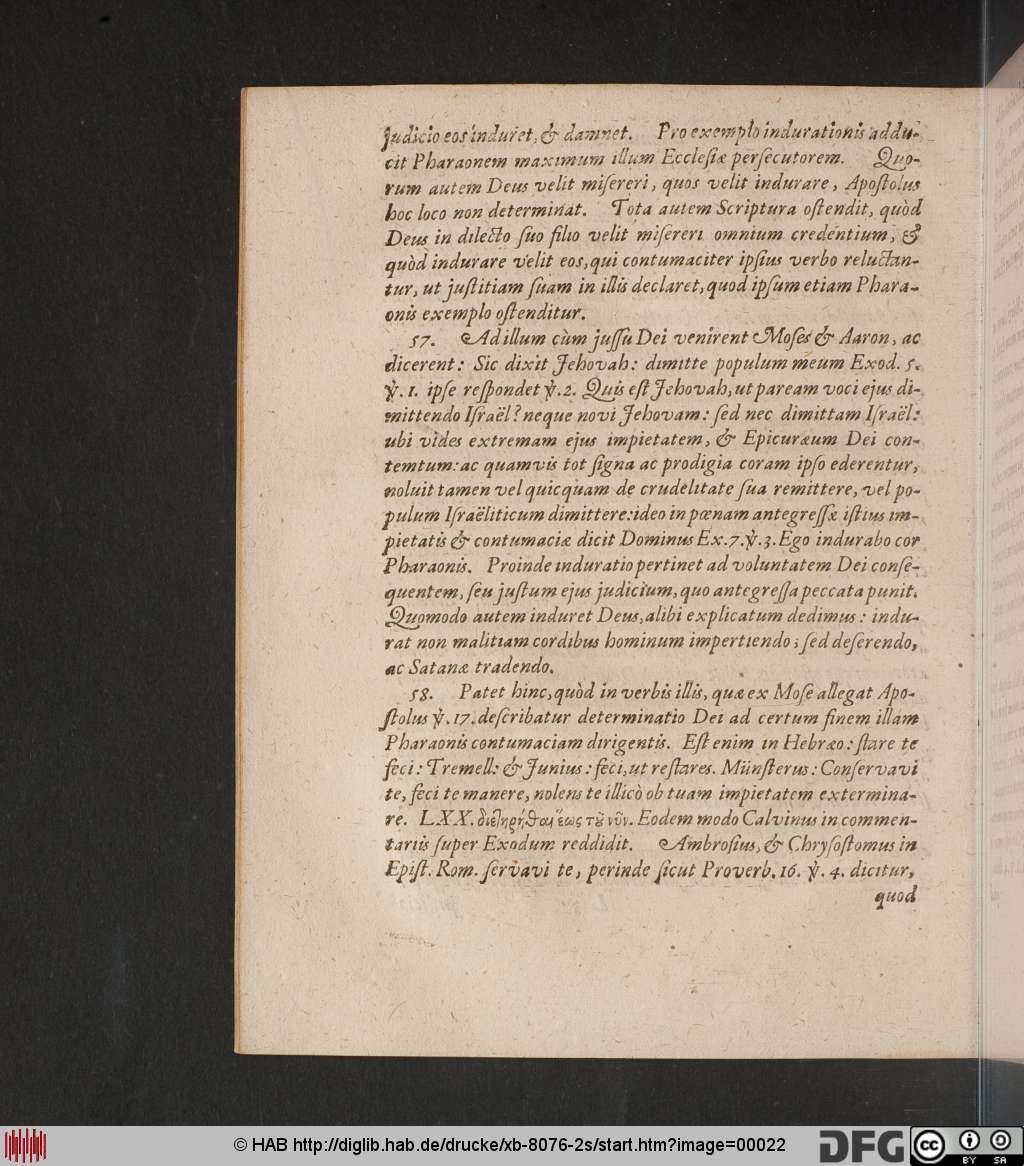 judicio eos induret, & damnet. Pro exemplo indurationis addu-
cit Pharaonem maximum illum Ecclesiæ persecutorem. Quo-
rum autem Deus velit misereri, quos velit indurare, Apostolus
hoc loco non determinat. Tota autem Scriptura ostendit, quòd
Deus in dilecto suo filio velit misereri omnium credentium, &
quòd indurare velit eos, qui contumaciter ipsius verbo reluctan-
tur, ut justitiam suam in illis declaret, quod ipsum etiam Phara-
onis exemplo ostenditur.
57. Ad illum cùm jussu Dei venirent Moses & Aaron, ac
dicerent: Sic dixit Jehovah: dimitte populum meum Exod. 5.
℣. 1. ipse respondet ℣. 2. Quis est Jehovah, ut paream voci ejus di-
mittendo Israël? neque novi Jehovam: sed nec dimittam Israël:
ubi vides extremam ejus impietatem, & Epicuræum Dei con-
temtum: ac quamvis tot signa ac prodigia coram ipso ederentur,
noluit tamen vel quicquam de crudelitate sua remittere, vel po-
pulum Israëliticum dimittere: ideo in pœnam antegressæ istius im-
pietatis & contumaciæ dicit Dominus Ex. 7. ℣. 3. Ego indurabo cor
Pharaonis. Proinde induratio pertinet ad voluntatem Dei conse-
quentem, seu justum ejus judicium, quo antegressa peccata punit.
Quomodo autem induret Deus, alibi explicatum dedimus: indu-
rat non malitiam cordibus hominum impertiendo; sed deserendo,
ac Satanæ tradendo.
58. Patet hinc, quòd in verbis illis, quæ ex Mose allegat Apo-
stolus ℣. 17. describatur determinatio Dei ad certum finem illam
Pharaonis contumaciam dirigentis. Est enim in Hebræo: stare te
feci: Tremell: & Junius: feci, ut restares. Münsterus: Conservavi
te, feci te manere, nolens te illicò ob tuam impietatem extermina-
re. LXX. διετηρήθης ἕως τοῦ νῦν. Eodem modo Calvinus in commen-
tariis super Exodum reddidit. Ambrosius, & Chrysostomus in
Epist. Rom. servavi te, perinde sicut Proverb. 16. ℣. 4. dicitur,
quod
© HAB http://diglib.hab.de/drucke/xb-8076-2s/start.htm?image=00022
DFG
cc BY SA